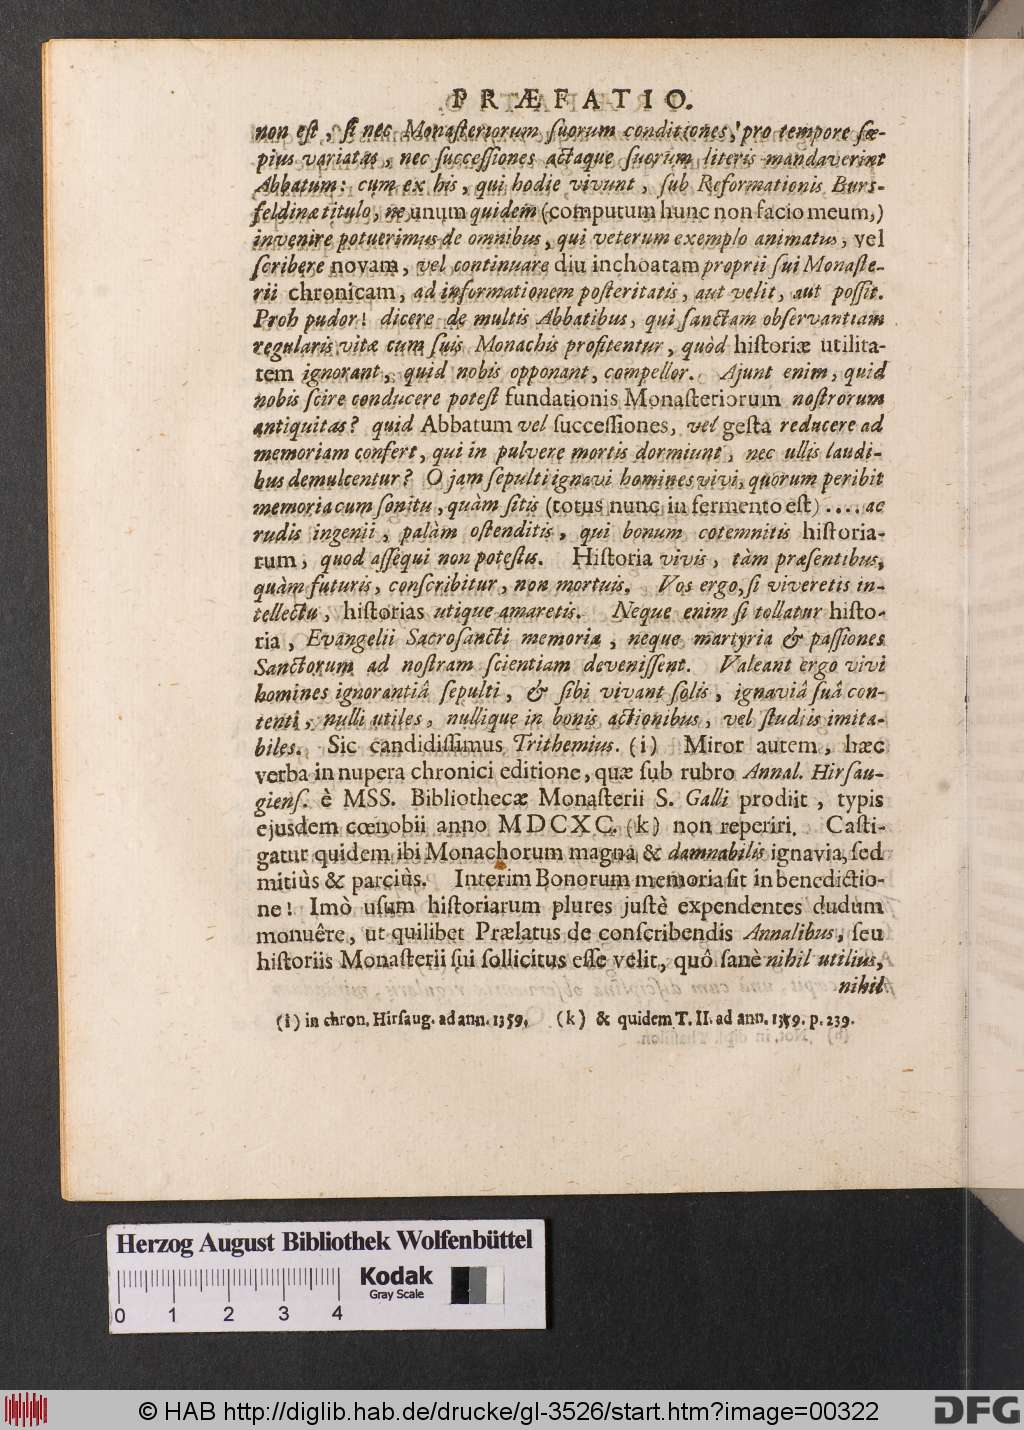 PRÆFATIO.
non eſt, ſi nec Monaſteriorum ſuorum conditiones, pro tempore ſæ-
pius variatas, nec ſucceſſiones actaque ſuorum literis mandaverint
Abbatum: cum ex his, qui hodie vivunt, ſub Reformationis Burs-
feldinæ titulo, ne unum quidem (computum hunc non facio meum,)
invenire potuerimus de omnibus, qui veterum exemplo animatus, vel
ſcribere novam, vel continuare diu inchoatam proprii ſui Monaſte-
rii chronicam, ad informationem poſteritatis, aut velit, aut poſſit.
Proh pudor! dicere de multis Abbatibus, qui ſanctam obſervantiam
regularis vitæ cum ſuis Monachis profitentur, quòd hiſtoriæ utilita-
tem ignorant, quid nobis opponant, compellor. Ajunt enim, quid
nobis ſcire conducere poteſt fundationis Monaſteriorum noſtrorum
antiquitas? quid Abbatum vel ſucceſſiones, vel geſta reducere ad
memoriam confert, qui in pulvere mortis dormiunt, nec ullis laudi-
bus demulcentur? O jam ſepulti ignavi homines vivi, quorum peribit
memoria cum ſonitu, quàm ſitis (totus nunc in fermento eſt) .... ac
rudis ingenii, palàm oſtenditis, qui bonum cotemnitis hiſtoria-
rum, quod aſſequi non poteſtis. Hiſtoria vivis, tàm præſentibus,
quàm futuris, conſcribitur, non mortuis. Vos ergo, ſi viveretis in-
tellectu, hiſtorias utique amaretis. Neque enim ſi tollatur hiſto-
ria, Evangelii Sacroſancti memoria, neque martyria & paſſiones
Sanctorum ad noſtram ſcientiam deveniſſent. Valeant ergo vivi
homines ignorantiâ ſepulti, & ſibi vivant ſolis, ignaviâ ſuâ con-
tenti, nulli utiles, nullique in bonis actionibus, vel ſtudiis imita-
biles. Sic candidiſſimus Trithemius. (i) Miror autem, hæc
verba in nupera chronici editione, quæ ſub rubro Annal. Hirſau-
gienſ. è MSS. Bibliothecæ Monaſterii S. Galli prodiit, typis
ejusdem cœnobii anno MDCXC. (k) non reperiri. Caſti-
gatur quidem ibi Monachorum magna & damnabilis ignavia, ſed
mitiùs & parciùs. Interim Bonorum memoria ſit in benedictio-
ne! Imò uſum hiſtoriarum plures juſtè expendentes dudum
monuêre, ut quilibet Prælatus de conſcribendis Annalibus, ſeu
hiſtoriis Monaſterii ſui ſollicitus eſſe velit, quô ſanè nihil utilius,
nihil
(i) in chron. Hirſaug. ad ann. 1359. (k) & quidem T. II. ad ann. 1359. p. 239.
Herzog August Bibliothek Wolfenbüttel
Kodak
Gray Scale
0 1 2 3 4
© HAB http://diglib.hab.de/drucke/gl-3526/start.htm?image=00322
DFG